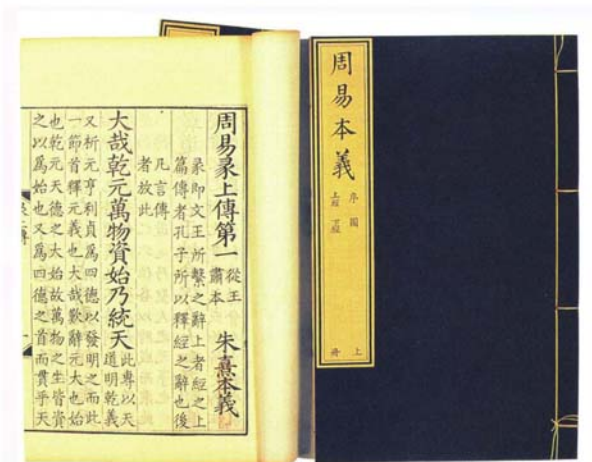 周易本義
序圖
上經 下經
上冊
周易彖上傳第一 從王肅本 朱熹本義
彖即文王所繫之辭上者經之上
篇傳者孔子所以釋經之辭也後
凡言傳
者放此
大哉乾元萬物資始乃統天 此專以天
道明乾義
又析元亨利貞爲四德以發明之而此
一節首釋元義也大哉歎辭元大也始
也乾元天德之大始故萬物之生皆資
之以爲始也又爲四德之首而貫乎天